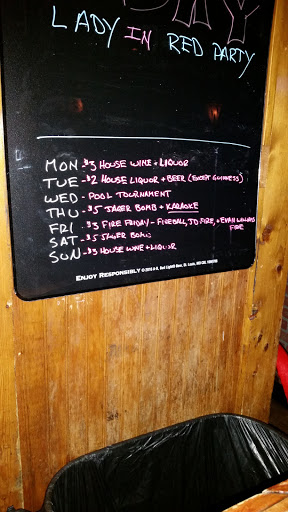 LADY IN RED PARTY
MON - $3 HOUSE WINE + LIQUOR
TUE - $2 HOUSE LIQUOR + BEER (EXCEPT GUINNESS)
WED - POOL TOURNAMENT
THU - $5 JAGER BOMB + KARAOKE
FRI - $3 FIRE FRIDAY - FIREBALL, JD FIRE, + EVAN WILLIAMS
FIRE
SAT - $5 JAGER BOMB
SUN - $3 HOUSE WINE + LIQUOR
ENJOY RESPONSIBLY